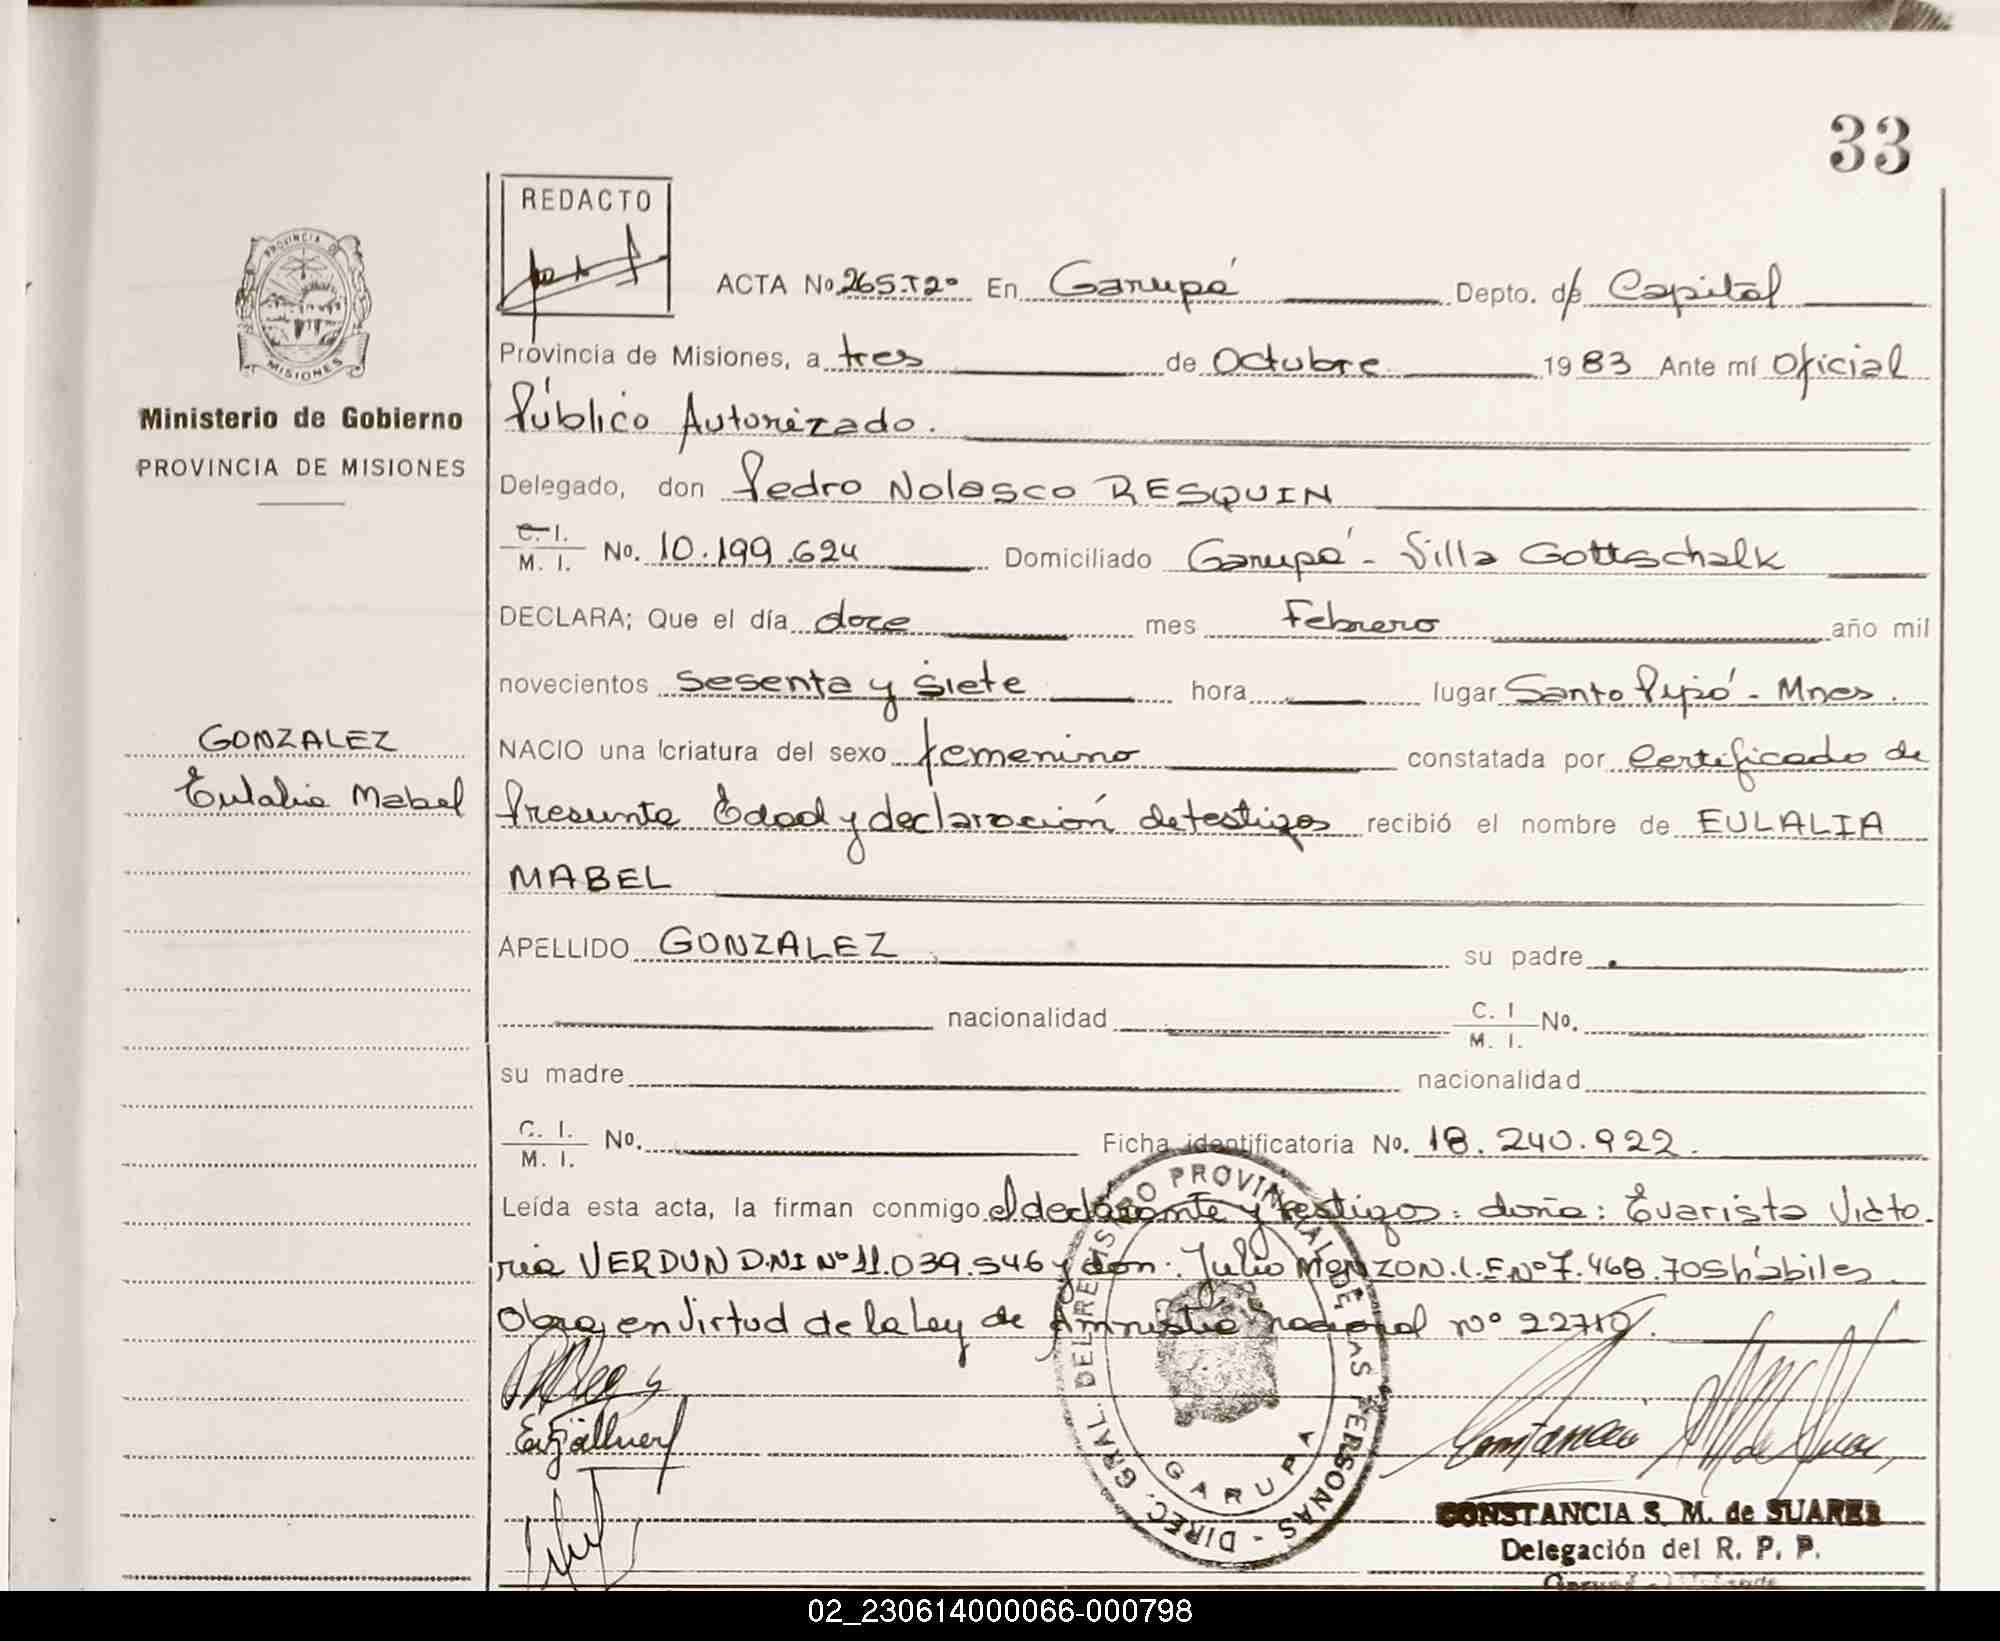 33
REDACTO
PROVINCIA DE
MISIONES
Ministerio de Gobierno
PROVINCIA DE MISIONES
ACTA No. 265.T2º En Garupá Depto. de Capital
Provincia de Misiones, a tres de Octubre 1983 Ante mí Oficial
Público Autorizado.
Delegado, don Pedro Nolasco RESQUIN
C. I. / M. I. No. 10.199.624 Domiciliado Garupá - Villa Gottschalk
DECLARA; Que el día doce mes Febrero año mil
novecientos sesenta y siete hora lugar Santo Pipó - Mnes.
GONZALEZ
Eulalia Mabel
NACIO una criatura del sexo femenino constatada por Certificado de
Presunta Edad y declaración de testigos recibió el nombre de EULALIA
MABEL
APELLIDO GONZALEZ su padre
nacionalidad C. I / M. I. No.
su madre nacionalidad
C. I. / M. I. No. Ficha identificatoria No. 18.240.922.
Leída esta acta, la firman conmigo el declarante y testigos: doña: Evarista Victo-
ria VERDUN D.NI Nº 11.039.546 y don: Julio MONZON. L.E Nº 7.468.705 hábiles.
Obra, en virtud de la Ley de Amnistía nacional nº 22710.
DIREC. GRAL. DEL REGISTRO PROVINCIAL DE LAS PERSONAS -
GARUPA
Constancia S M de Suarez
CONSTANCIA S. M. de SUAREZ
Delegación del R. P. P.
02_230614000066-000798